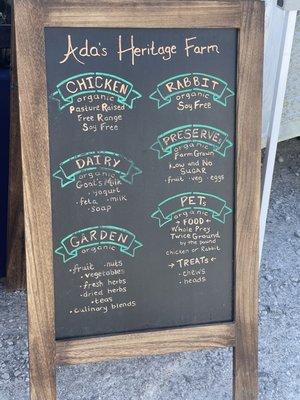 Ada's Heritage Farm
CHICKEN
organic
Pasture Raised
Free Range
Soy Free
DAIRY
organic
Goat's Milk
• yogurt
• feta • milk
• soap
GARDEN
organic
• fruit • nuts
• vegetables
• fresh herbs
• dried herbs
• teas
• culinary blends
RABBIT
organic
Soy Free
PRESERVES
organic
Farm Grown
Low and No
Sugar
• fruit • veg • eggs
PETS
organic
→ FOOD ←
Whole Prey
Twice Ground
by the pound
chicken or Rabbit
→ TREATS ←
• chews
• heads